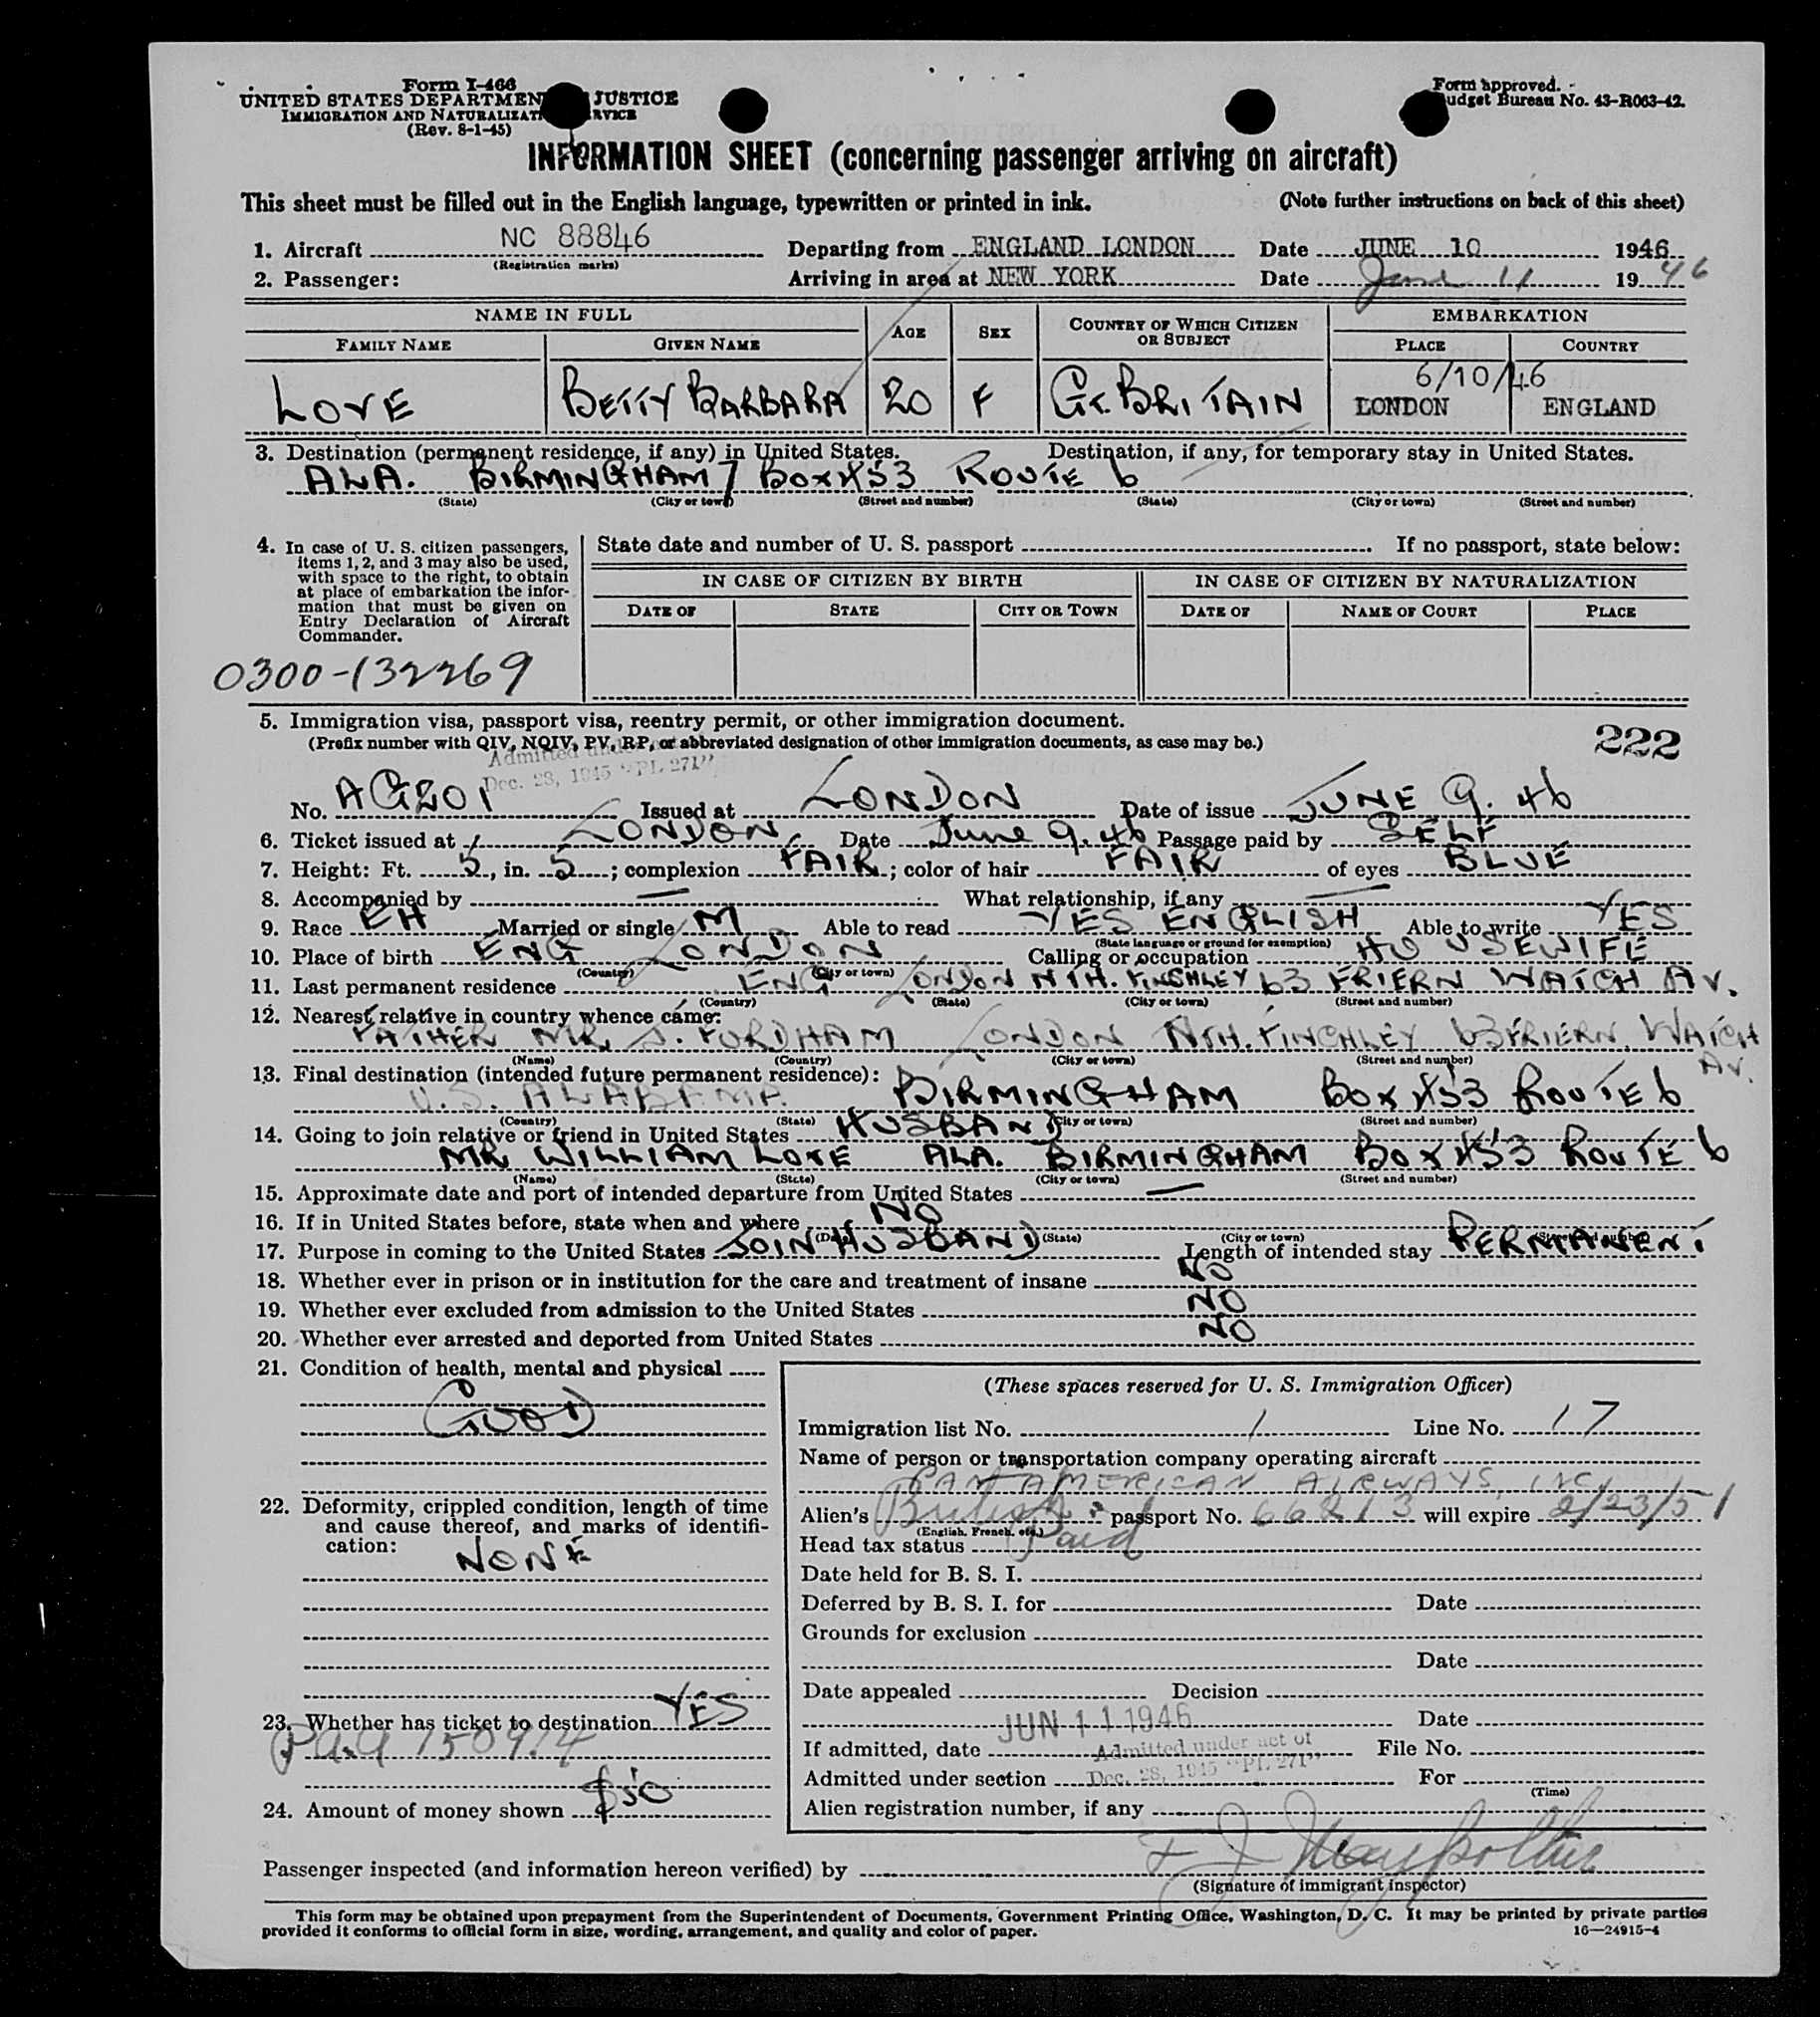 Form I-466
UNITED STATES DEPARTMENT JUSTICE
IMMIGRATION AND NATURALIZATI RVICE
(Rev. 8-1-45)
Form approved.
udget Bureau No. 43-R063-42.
INFORMATION SHEET (concerning passenger arriving on aircraft)
This sheet must be filled out in the English language, typewritten or printed in ink. (Note further instructions on back of this sheet)
1. Aircraft NC 88846 Departing from ENGLAND LONDON Date JUNE 10 1946
(Registration marks)
2. Passenger: Arriving in area at NEW YORK Date June 11 19 46
NAME IN FULL AGE SEX COUNTRY OF WHICH CITIZEN OR SUBJECT EMBARKATION
FAMILY NAME GIVEN NAME PLACE COUNTRY
6/10/46
LOVE BETTY BARBARA 20 F GT. BRITAIN LONDON ENGLAND
3. Destination (permanent residence, if any) in United States. Destination, if any, for temporary stay in United States.
ALA. BIRMINGHAM 7 BOX 453 ROUTE 6
(State) (City or town) (Street and number) (State) (City or town) (Street and number)
4. In case of U. S. citizen passengers,
items 1, 2, and 3 may also be used,
with space to the right, to obtain
at place of embarkation the infor-
mation that must be given on
Entry Declaration of Aircraft
Commander.
0300-132269
State date and number of U. S. passport . If no passport, state below:
IN CASE OF CITIZEN BY BIRTH IN CASE OF CITIZEN BY NATURALIZATION
DATE OF STATE CITY OR TOWN DATE OF NAME OF COURT PLACE
5. Immigration visa, passport visa, reentry permit, or other immigration document.
(Prefix number with QIV, NQIV, PV, RP, or abbreviated designation of other immigration documents, as case may be.)
222
Admitted under
Dec. 28, 1945 "PL 271"
No. AG201 Issued at LONDON Date of issue JUNE 9. 46
6. Ticket issued at LONDON Date June 9. 46 Passage paid by SELF
7. Height: Ft. 5, in. 5; complexion FAIR; color of hair FAIR of eyes BLUE
8. Accompanied by — What relationship, if any —
9. Race EH Married or single M Able to read YES ENGLISH Able to write YES
(State language or ground for exemption)
10. Place of birth ENG LONDON Calling or occupation HOUSEWIFE
(Country) (City or town)
11. Last permanent residence ENG LONDON NTH. FINCHLEY 63 FRIERN WATCH AV.
(Country) (State) (City or town) (Street and number)
12. Nearest relative in country whence came:
FATHER MR. J. FORDHAM LONDON NTH. FINCHLEY 63 FRIERN WATCH AV.
(Name) (Country) (City or town) (Street and number)
13. Final destination (intended future permanent residence):
U.S. ALABAMA BIRMINGHAM BOX 453 ROUTE 6
(Country) (State) (City or town) (Street and number)
14. Going to join relative or friend in United States HUSBAND
MR WILLIAM LOVE ALA. BIRMINGHAM BOX 453 ROUTE 6
(Name) (State) (City or town) (Street and number)
15. Approximate date and port of intended departure from United States —
16. If in United States before, state when and where NO
(State) (City or town)
17. Purpose in coming to the United States JOIN HUSBAND Length of intended stay PERMANENT
18. Whether ever in prison or in institution for the care and treatment of insane NO
19. Whether ever excluded from admission to the United States NO
20. Whether ever arrested and deported from United States NO
21. Condition of health, mental and physical
GOOD
22. Deformity, crippled condition, length of time
and cause thereof, and marks of identifi-
cation:
NONE
23. Whether has ticket to destination YES
24. Amount of money shown $50
(These spaces reserved for U. S. Immigration Officer)
Immigration list No. 1 Line No. 17
Name of person or transportation company operating aircraft
PAN AMERICAN AIRWAYS, INC.
Alien's British passport No. 66213 will expire 2/23/51
(English, French, etc.)
Head tax status Paid
Date held for B. S. I.
Deferred by B. S. I. for Date
Grounds for exclusion
Date
Date appealed Decision
Date
If admitted, date JUN 11 1946 File No.
Admitted under section Admitted under act of Dec. 28, 1945 "PL 271" For
(Time)
Alien registration number, if any
Passenger inspected (and information hereon verified) by
(Signature of immigrant inspector)
This form may be obtained upon prepayment from the Superintendent of Documents, Government Printing Office, Washington, D. C. It may be printed by private parties
provided it conforms to official form in size, wording, arrangement, and quality and color of paper. 16—24915-4